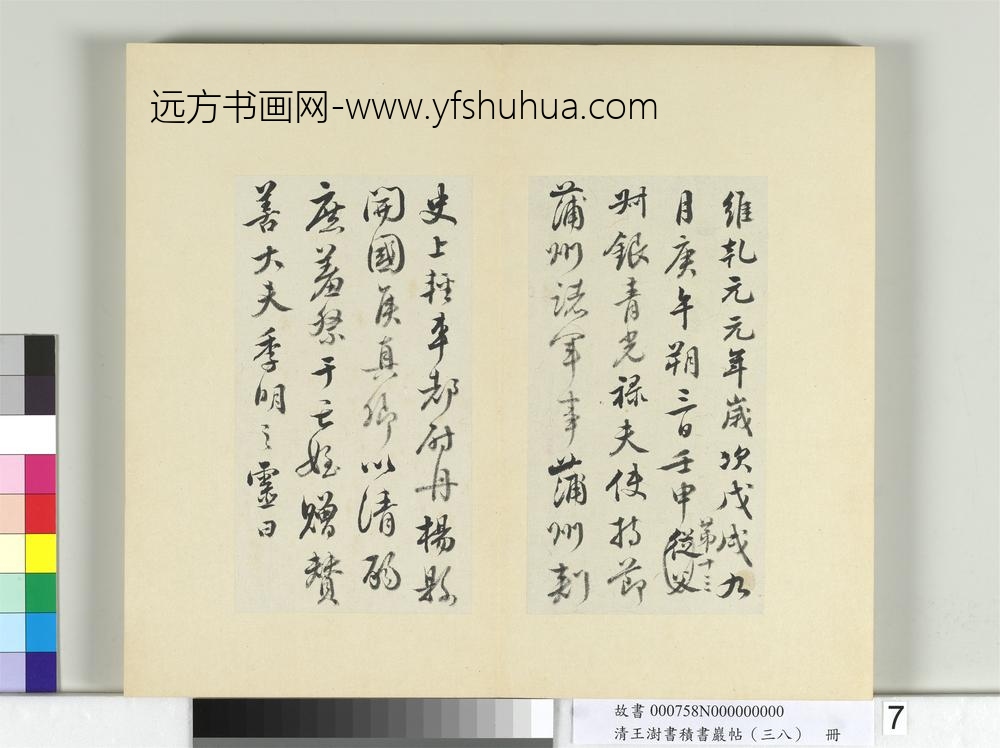 远方书画网-www.yfshuhua.com
維乾元元年歲次戊戌九
月庚午朔三日壬申從父
第十三
叔銀青光祿夫使持節
蒲州諸軍事蒲州刺
史上輕車都尉丹楊縣
開國侯真卿以清酌
庶羞祭于亡姪贈贊
善大夫季明之靈曰
故書 000758N000000000
清王澍書積書巖帖（三八） 冊
7